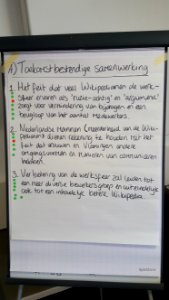 A) Toekomstbestendige samenwerking
1. Het feit dat veel Wikipedianen de werk-
sfeer ervaren als "
zorgt voor vermindering van bijdragen en een
terugloop van het aantal medewerkers.
2. Nederlandse mannen (meerderheid van de Wiki-
pedianen) dienen rekening te houden met het
feit dat vrouwen en Vlamingen andere
omgangsvormen en manieren van communiceren
hebben.
3. Verbetering van de werksfeer zal leiden tot
een meer diverse bewerkersgroep en uiteindelijk
ook tot een inhoudelijk betere Wikipedia.